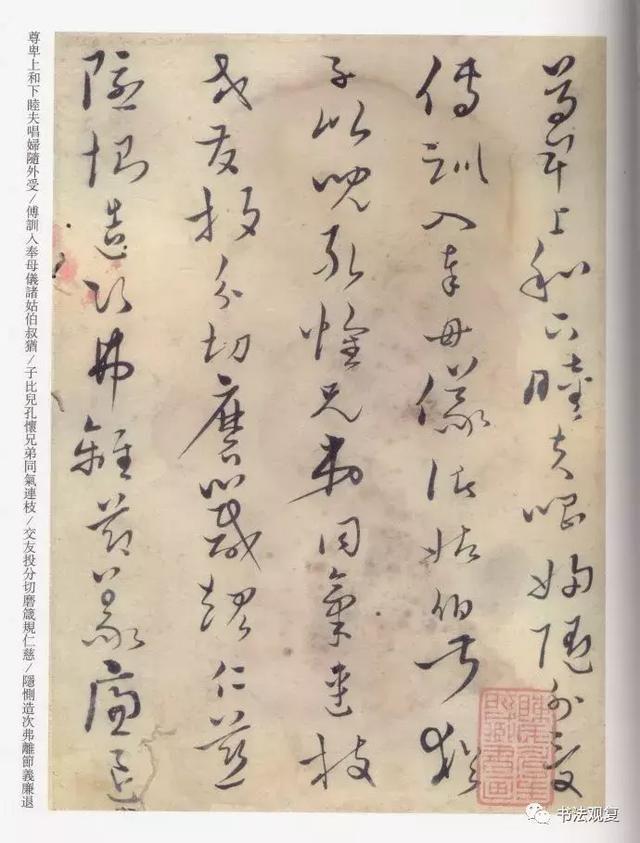 尊卑上和下睦夫唱婦隨外受
傅訓入奉母儀諸姑伯叔猶
子比兒孔懷兄弟同氣連枝
交友投分切磨箴規仁慈
隱惻造次弗離節義廉退
尊卑上和下睦夫唱婦隨外受/傅訓入奉母儀諸姑伯叔猶/子比兒孔懷兄弟同氣連枝/交友投分切磨箴規仁慈/隱惻造次弗離節義廉退
书法观复